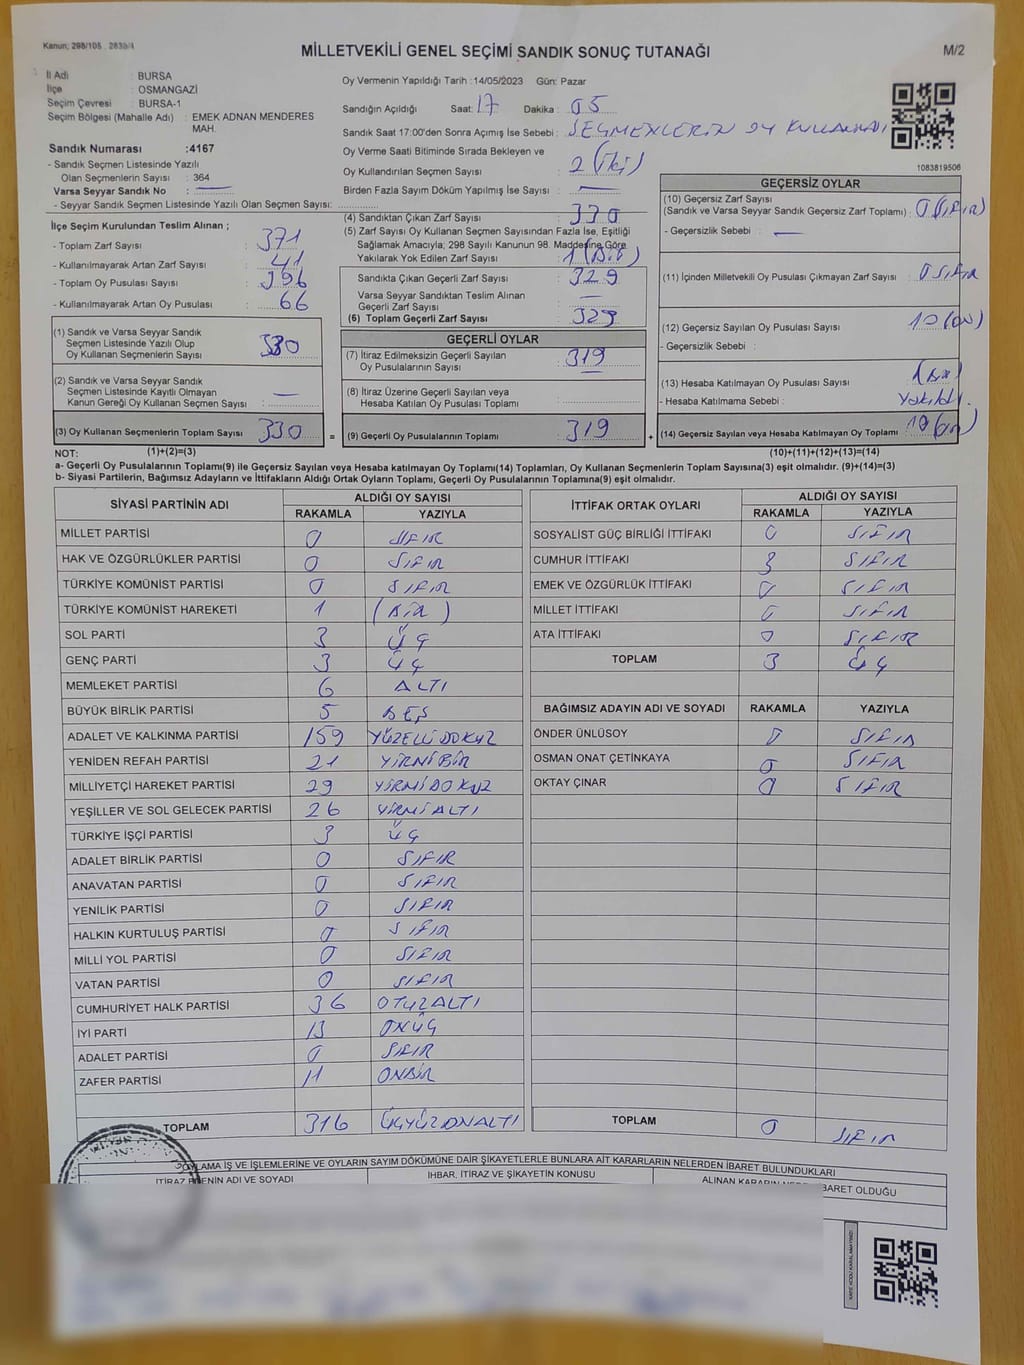 Kanun; 298/105 . 2839/4
MİLLETVEKİLİ GENEL SEÇİMİ SANDIK SONUÇ TUTANAĞI
M/2
İl Adı : BURSA
İlçe : OSMANGAZİ
Seçim Çevresi : BURSA-1
Seçim Bölgesi (Mahalle Adı) : EMEK ADNAN MENDERES MAH.
Sandık Numarası :4167
- Sandık Seçmen Listesinde Yazılı
Olan Seçmenlerin Sayısı : 364
Varsa Seyyar Sandık No :
- Seyyar Sandık Seçmen Listesinde Yazılı Olan Seçmen Sayısı:
Oy Vermenin Yapıldığı Tarih :14/05/2023 Gün: Pazar
Sandığın Açıldığı Saat: 17 Dakika : 05
Sandık Saat 17:00'den Sonra Açımış İse Sebebi : SEÇMENLERİN OY KULLANMASI
Oy Verme Saati Bitiminde Sırada Bekleyen ve
Oy Kullandırılan Seçmen Sayısı : 2 (iki)
Birden Fazla Sayım Döküm Yapılmış İse Sayısı :
1083819506
İlçe Seçim Kurulundan Teslim Alınan ;
- Toplam Zarf Sayısı : 371
- Kullanılmayarak Artan Zarf Sayısı : 41
- Toplam Oy Pusulası Sayısı : 396
- Kullanılmayarak Artan Oy Pusulası : 66
(1) Sandık ve Varsa Seyyar Sandık
Seçmen Listesinde Yazılı Olup
Oy Kullanan Seçmenlerin Sayısı : 330
(2) Sandık ve Varsa Seyyar Sandık
Seçmen Listesinde Kayıtlı Olmayan
Kanun Gereği Oy Kullanan Seçmen Sayısı :
(3) Oy Kullanan Seçmenlerin Toplam Sayısı 330
(4) Sandıktan Çıkan Zarf Sayısı : 330
(5) Zarf Sayısı Oy Kullanan Seçmen Sayısından Fazla İse, Eşitliği
Sağlamak Amacıyla; 298 Sayılı Kanunun 98. Maddesine Göre
Yakılarak Yok Edilen Zarf Sayısı : 1 (Bir)
Sandıkta Çıkan Geçerli Zarf Sayısı : 329
Varsa Seyyar Sandıktan Teslim Alınan
Geçerli Zarf Sayısı :
(6) Toplam Geçerli Zarf Sayısı : 329
GEÇERLİ OYLAR
(7) İtiraz Edilmeksizin Geçerli Sayılan
Oy Pusulalarının Sayısı : 319
(8) İtiraz Üzerine Geçerli Sayılan veya
Hesaba Katılan Oy Pusulası Toplamı :
= (9) Geçerli Oy Pusulalarının Toplamı : 319
GEÇERSİZ OYLAR
(10) Geçersiz Zarf Sayısı
(Sandık ve Varsa Seyyar Sandık Geçersiz Zarf Toplamı) : 0 (SIFIR)
- Geçersizlik Sebebi :
(11) İçinden Milletvekili Oy Pusulası Çıkmayan Zarf Sayısı : 0 SIFIR
(12) Geçersiz Sayılan Oy Pusulası Sayısı : 10 (ON)
- Geçersizlik Sebebi :
(13) Hesaba Katılmayan Oy Pusulası Sayısı : 1 (Bir)
- Hesaba Katılmama Sebebi : Yakıldı.
+ (14) Geçersiz Sayılan veya Hesaba Katılmayan Oy Toplamı
NOT: (1)+(2)=(3) (10)+(11)+(12)+(13)=(14)
a- Geçerli Oy Pusulalarının Toplamı(9) ile Geçersiz Sayılan veya Hesaba katılmayan Oy Toplamı(14) Toplamları, Oy Kullanan Seçmenlerin Toplam Sayısına(3) eşit olmalıdır. (9)+(14)=(3)
b- Siyasi Partilerin, Bağımsız Adayların ve İttifakların Aldığı Ortak Oyların Toplamı, Geçerli Oy Pusulalarının Toplamına(9) eşit olmalıdır.
SİYASİ PARTİNİN ADI ALDIĞI OY SAYISI
RAKAMLA YAZIYLA
MİLLET PARTİSİ 0 SIFIR
HAK VE ÖZGÜRLÜKLER PARTİSİ 0 SIFIR
TÜRKİYE KOMÜNİST PARTİSİ 0 SIFIR
TÜRKİYE KOMÜNİST HAREKETİ 1 (BİR)
SOL PARTİ 3 ÜÇ
GENÇ PARTİ 3 ÜÇ
MEMLEKET PARTİSİ 6 ALTI
BÜYÜK BİRLİK PARTİSİ 5 BEŞ
ADALET VE KALKINMA PARTİSİ 159 YÜZELLİDOKUZ
YENİDEN REFAH PARTİSİ 21 YİRMİBİR
MİLLİYETÇİ HAREKET PARTİSİ 29 YİRMİDOKUZ
YEŞİLLER VE SOL GELECEK PARTİSİ 26 YİRMİALTI
TÜRKİYE İŞÇİ PARTİSİ 3 ÜÇ
ADALET BİRLİK PARTİSİ 0 SIFIR
ANAVATAN PARTİSİ 0 SIFIR
YENİLİK PARTİSİ 0 SIFIR
HALKIN KURTULUŞ PARTİSİ 0 SIFIR
MİLLİ YOL PARTİSİ 0 SIFIR
VATAN PARTİSİ 0 SIFIR
CUMHURİYET HALK PARTİSİ 36 OTUZALTI
İYİ PARTİ 13 ONÜÇ
ADALET PARTİSİ 0 SIFIR
ZAFER PARTİSİ 11 ONBİR
TOPLAM 316 ÜÇYÜZONALTI
İTTİFAK ORTAK OYLARI ALDIĞI OY SAYISI
RAKAMLA YAZIYLA
SOSYALİST GÜÇ BİRLİĞİ İTTİFAKI 0 SIFIR
CUMHUR İTTİFAKI 3 SIFIR
EMEK VE ÖZGÜRLÜK İTTİFAKI 0 SIFIR
MİLLET İTTİFAKI 0 SIFIR
ATA İTTİFAKI 0 SIFIR
TOPLAM 3 ÜÇ
BAĞIMSIZ ADAYIN ADI VE SOYADI RAKAMLA YAZIYLA
ÖNDER ÜNLÜSOY 0 SIFIR
OSMAN ONAT ÇETİNKAYA 0 SIFIR
OKTAY ÇINAR 0 SIFIR
TOPLAM 0 SIFIR
OYLAMA İŞ VE İŞLEMLERİNE VE OYLARIN SAYIM DÖKÜMÜNE DAİR ŞİKAYETLERLE BUNLARA AİT KARARLARIN NELERDEN İBARET BULUNDUKLARI
ADI VE SOYADI İHBAR, İTİRAZ VE ŞİKAYETİN KONUSU ALINAN